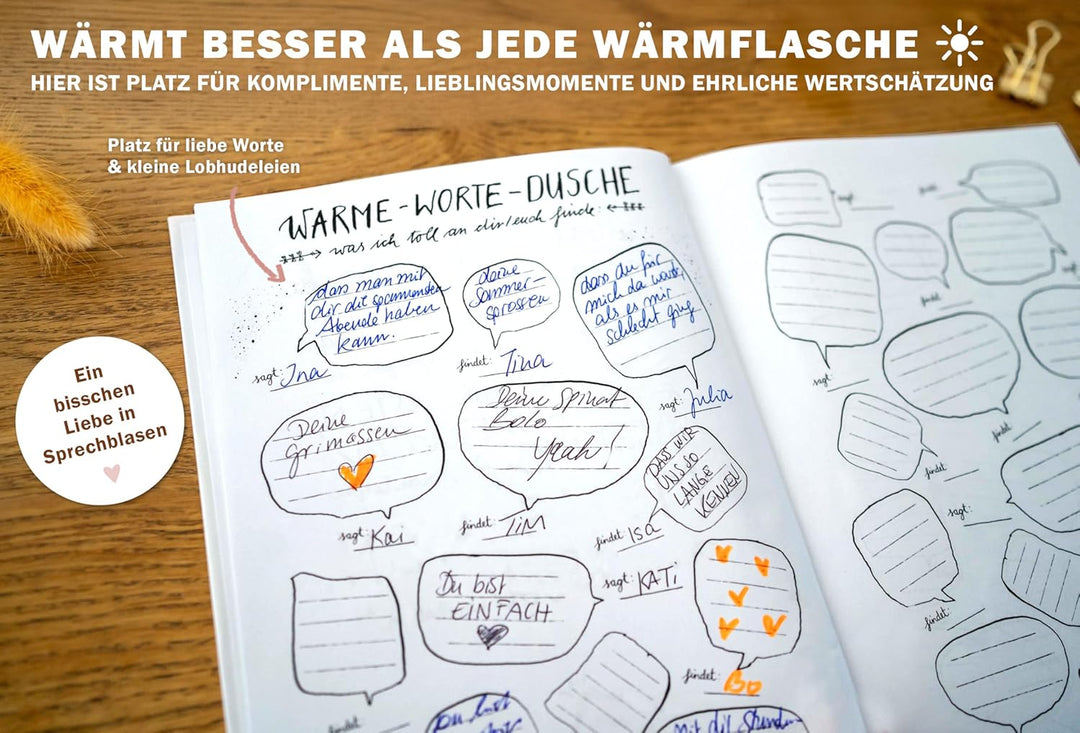 WÄRMT BESSER ALS JEDE WÄRMFLASCHE
HIER IST PLATZ FÜR KOMPLIMENTE, LIEBLINGSMOMENTE UND EHRLICHE WERTSCHÄTZUNG
Platz für liebe Worte
& kleine Lobhudeleien
WARME-WORTE-DUSCHE
was ich toll an dir/euch finde:
dass man mit
dir die spannendsten
Abende haben
kann.
sagt: Ina
deine
Sommer-
sprossen
findet: Tina
dass du für
mich da warst,
als es mir
schlecht ging
sagt: Julia
Ein
bisschen
Liebe in
Sprechblasen
Deine
grimassen
sagt: Kai
Deine Spinat
Bolo
Yeah!
findet: TIM
DASS WIR
UNS SO
LANGE
KENNEN
findet: ISA
Du bist
EINFACH
sagt: KATi
findet: Bo
findet
Du bist
mit dir Stunden-
sagt
findet
findet
sagt
findet
findet
sagt
findet